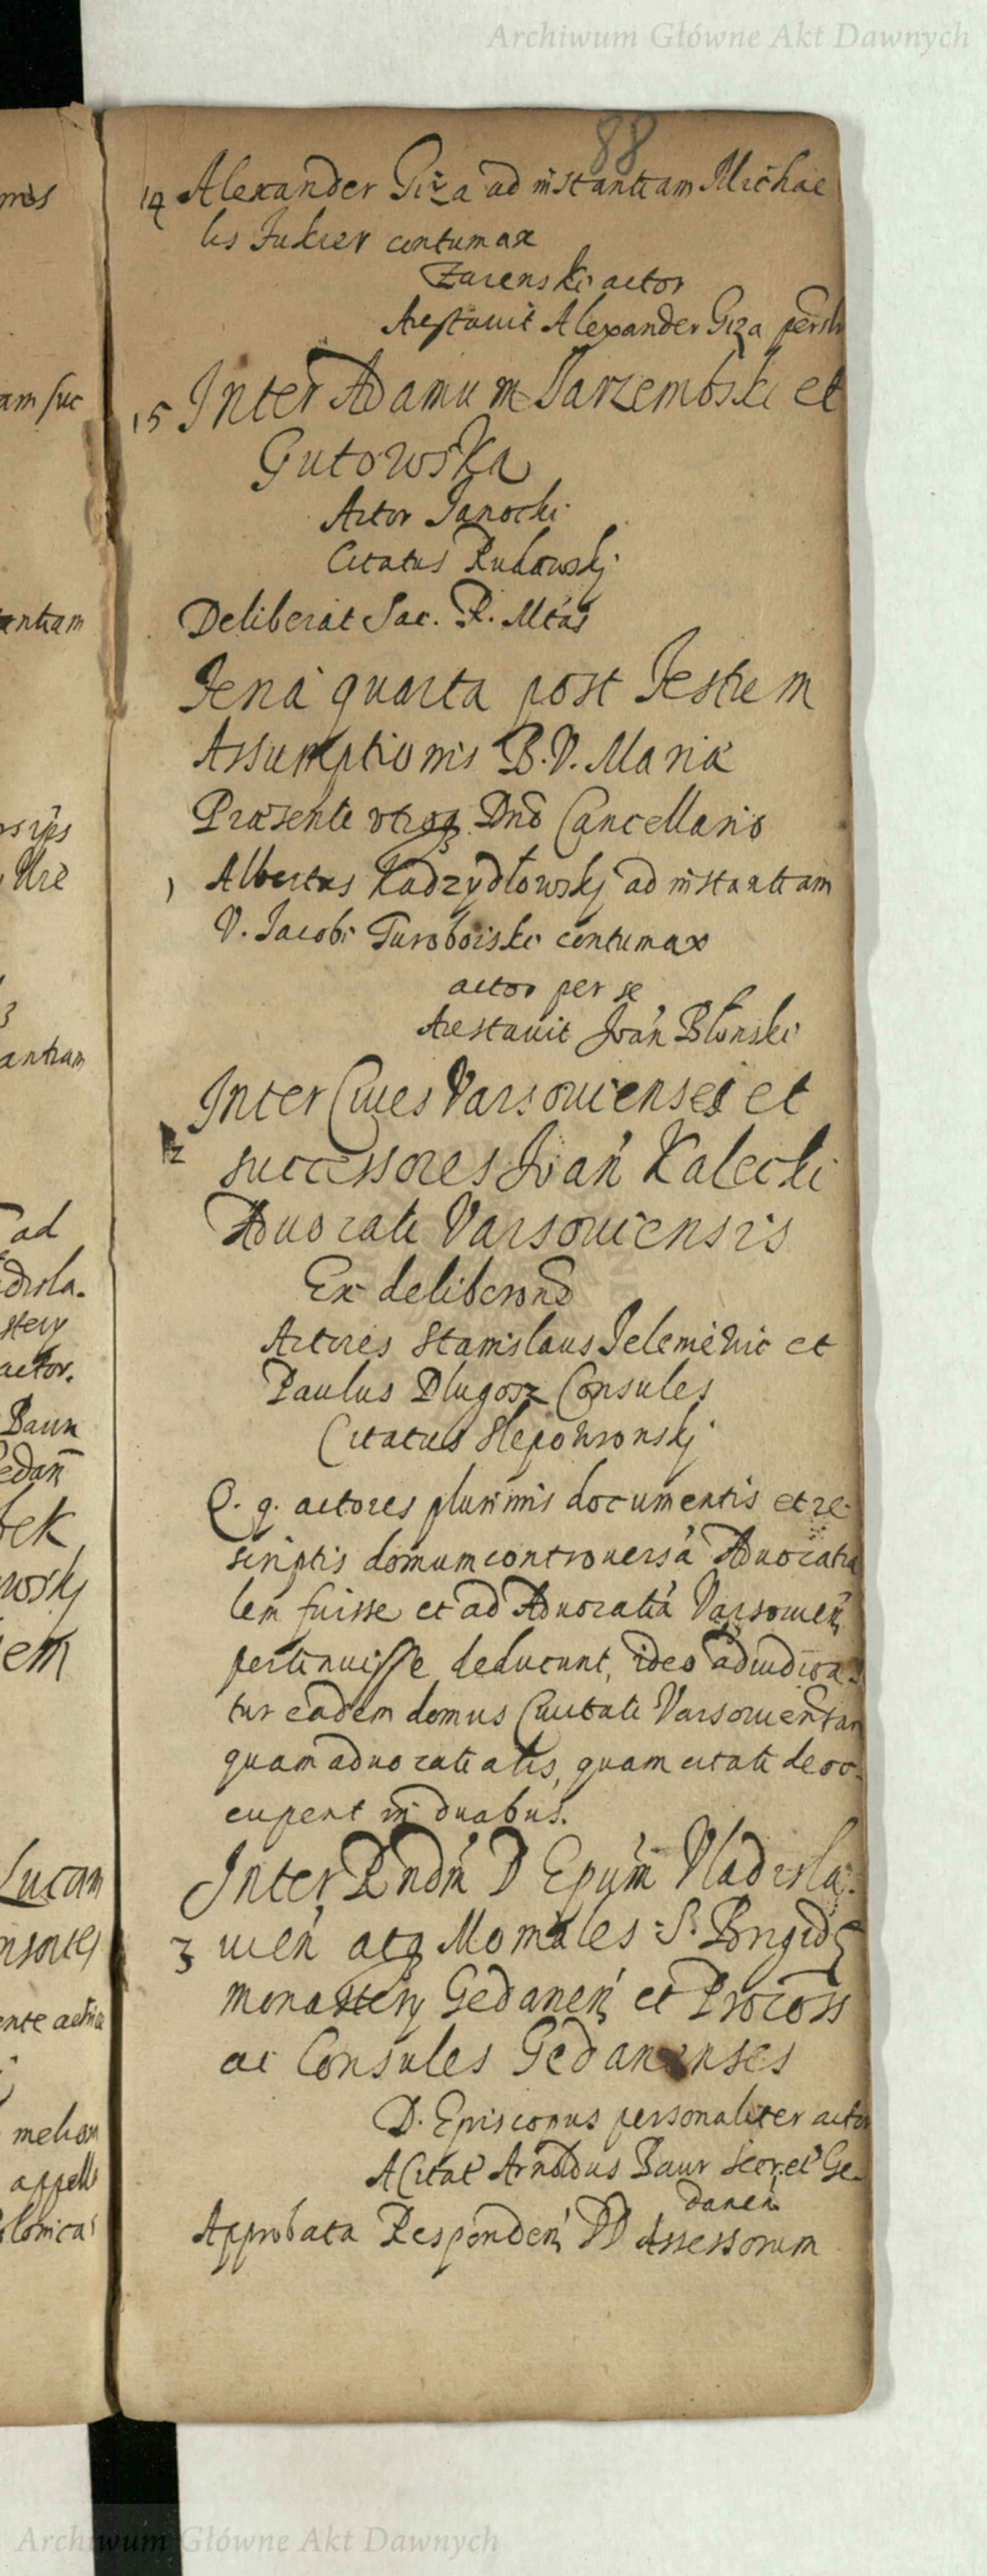 Archiwum Główne Akt Dawnych
88
14 Alexander Giza ad instantiam Michae
lis Fukier contumax
Zarenski actor
Arestauit Alexander Giza
15 Inter Adamum Jarzembski et
Gutowska
Actor Janocki
Citatus Rudowskj
Deliberat Sac. R. Mtás
Feria quarta post Festum
Assumptionis B. V. Mariæ
Præsente vtroq Dnõ Cancellario
1 Albertus Kadzydłowskj ad instantiam
V. Jacobi Turoboiski contumax
actor per se
Arestauit Joán Błonski
Inter Ciues Varsouienses et
2 successores Joán Kalecki
Aduocati Varsouiensis
Ex deliberõnẽ
Actores Stanislaus et
Paulus Dlugosz Consules
Citatus Slepowronskj
Q. q. actores plurimis documentis et re-
scriptis domum controuersã Aduocatia
lem fuisse et ad Aduocatiã Varsouień
pertinuisse deducunt, ideo adiudica-
tur eadem domus Ciuitati Varsouien
quam aduocatialis, quam citati de oc-
cupent in duabus.
Inter Rndḿ D Epuḿ Vladisla-
3 uień atq Moniales S. Brigidę
monastery Gedaneń et Procoss
ac Consules Gedanenses
D. Episcopus personaliter actor
A Citat Arnoldus Baur Secret Ge-
daneń
Approbata Respondeń DD Assessorum
mis
am suc
antiam
antiam
ad
disla.
stery
actor.
Baur
Gedañ
bek
em
Lucam
nsortes
ente actrice
melior
appell
olonica
Archiwum Główne Akt Dawnych